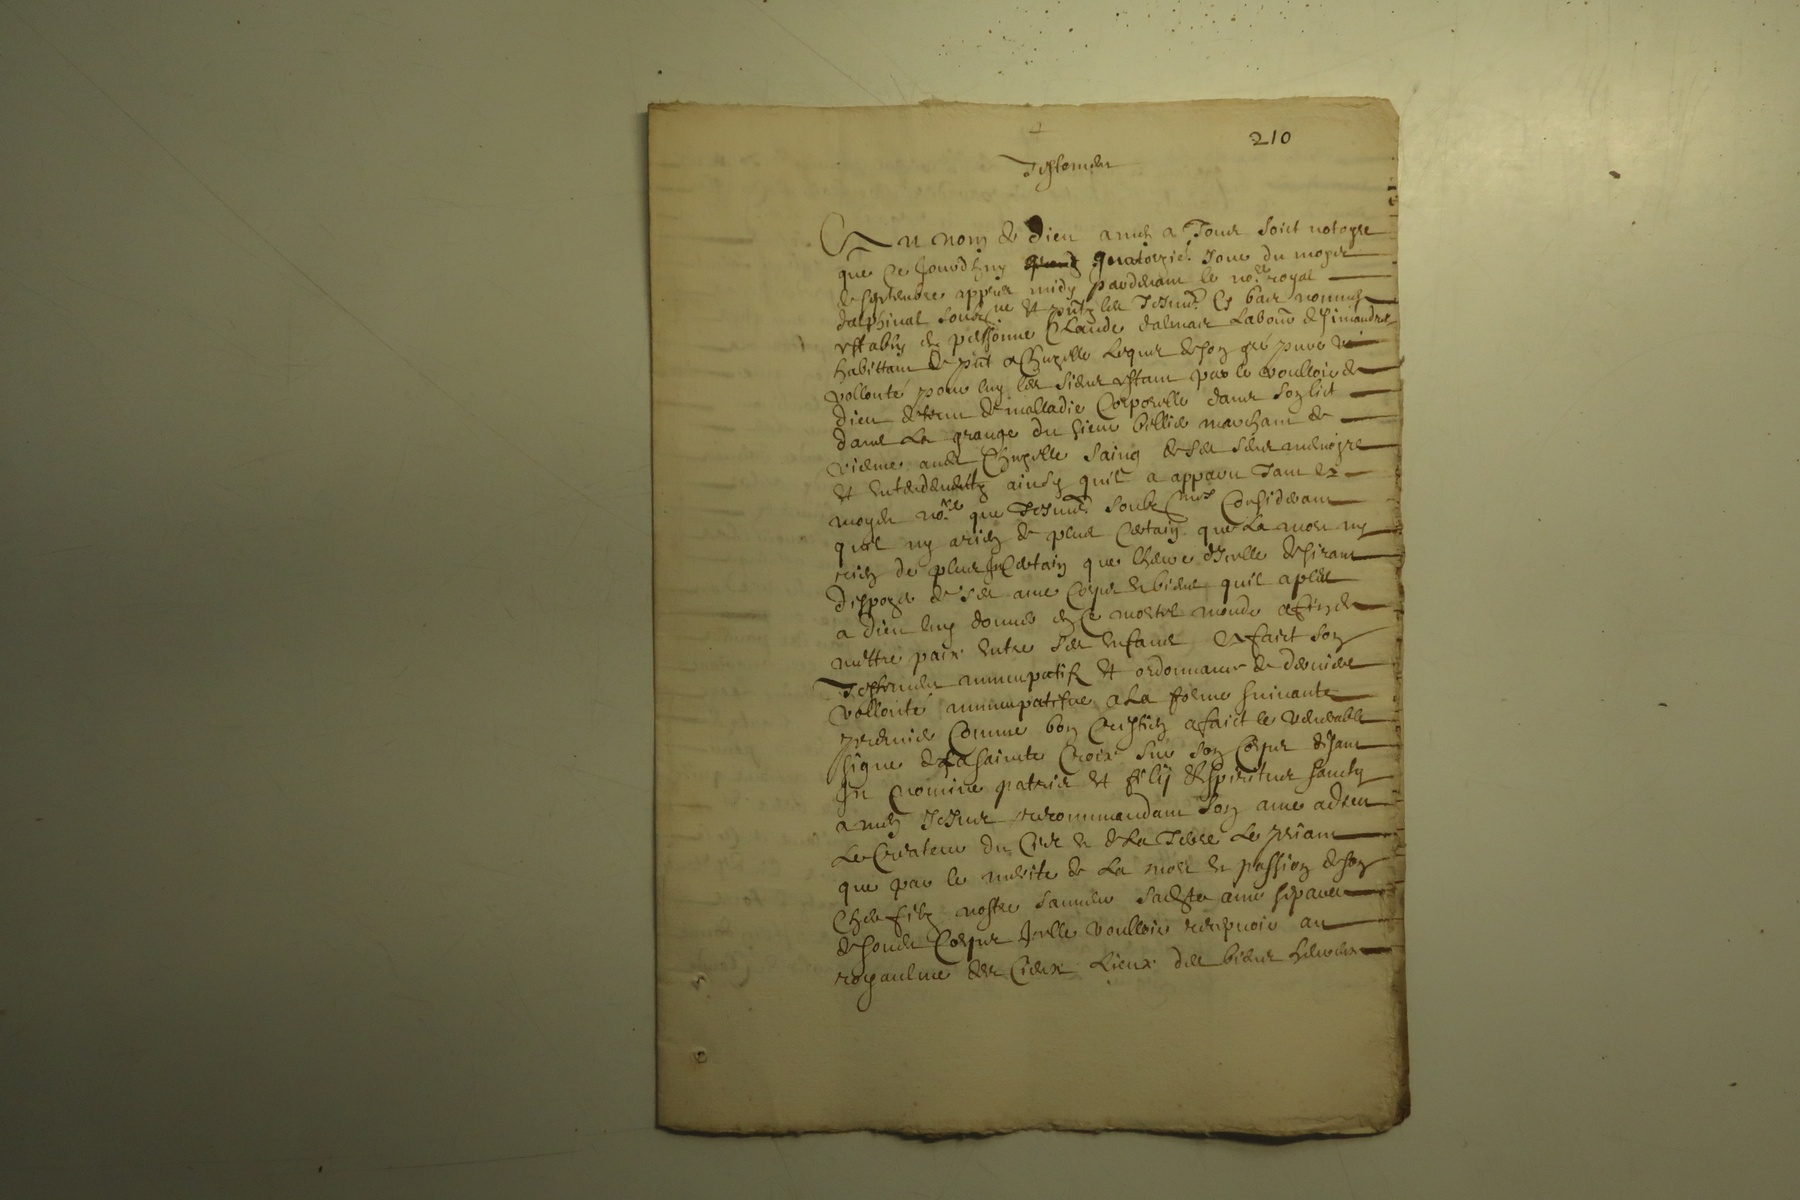 210
Testament
Au nom de Dieu amen a Tous soict notoyre
que ce jourdhuy quatorzie. Jour du moys
de septembre appres midy pardevant le no.re royal
dalphinal soubz.ne et putz les Tesmo. Cy bas nommes
estably en personne Claude dalmais Labour de simandres
habittant de put a Chuzelle Lequel de son gre pure
vollonte pour luy les siens estant par le voulloir de
Dieu detenu de malladie Corporelle dans son lict
dans La grange du sieur bellier marchant de
vienne audt Chuzelle saing de ses sens memoyre
et entendementz ainsy quil a apparu Tant
moyen no.re que Tesmo. soubz nes Considerant
quil ny a rien de plus Certain que La mort ny
rien de plus JnCertain que lheure dIcelle desirant
disposer de ses ame Corps et biens quil a pleu
a Dieu luy donner en Ce mortel monde affin de
mettre paix entre ses enfans, a faict son
Testament nuncupatif et ordonnance de derniere
vollonte nuncupatifve a La forme suivante
premier Comme bon Crestien a faict le venerable
signe de La sainte Croix sur son Corps disant
Jn nomine patris et filij et spiritus sancty
amen Jesus recommandant son ame a dieu
Le Createur du Ciel et de La Terre Le priant
que par le merite de La mort et passion de son
Cher filz nostre sauveur sadte ame separee
de sondt Corps Jcelle voulloir recepvoir au
royaulme des Cieux Lieux des biens heureux